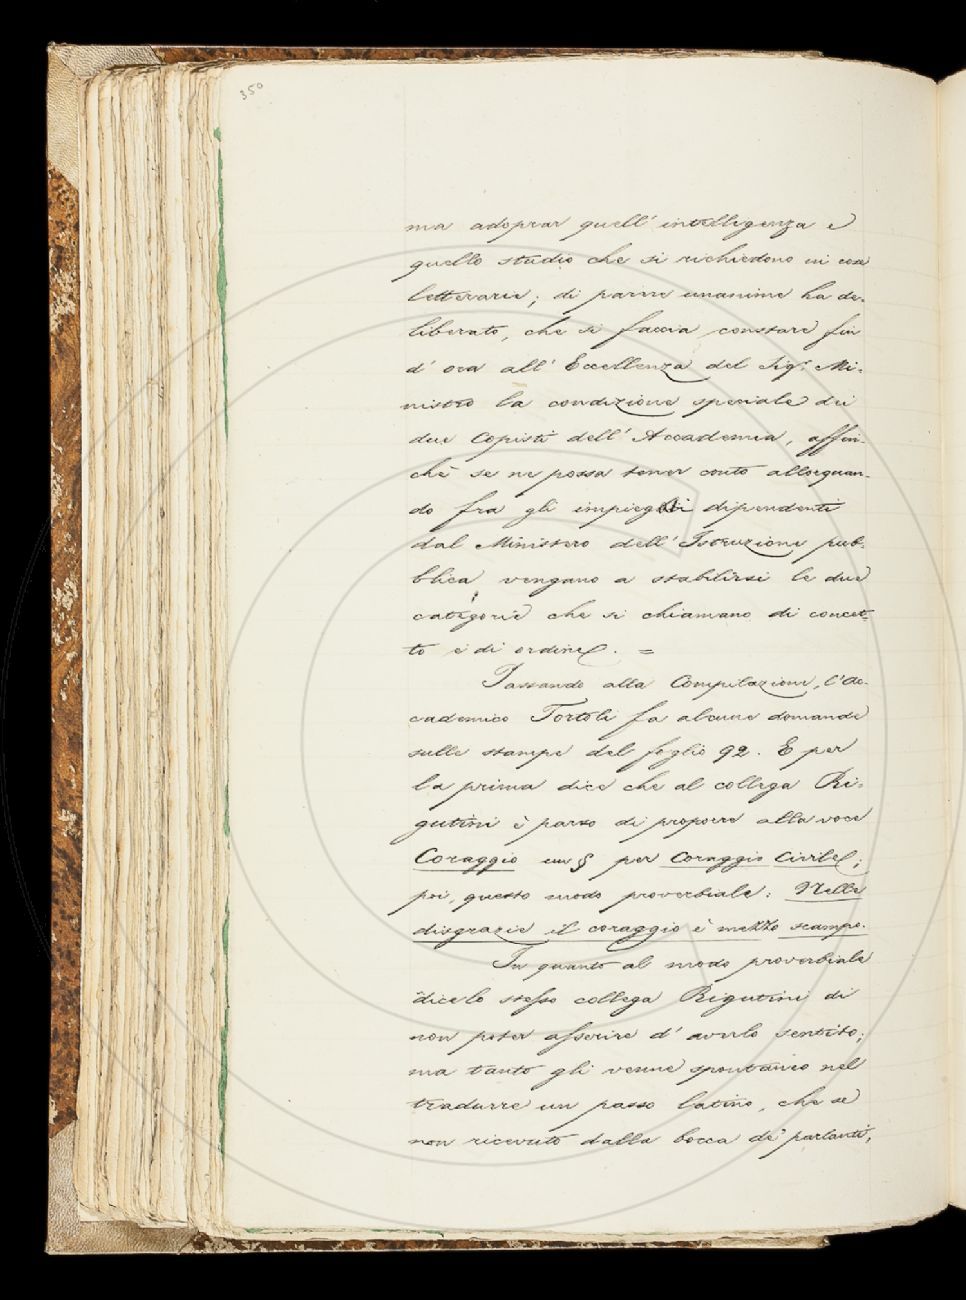 350
ma adoprar quell' intelligenza e
quello studio che si richiedono in cose
letterarie; di parere unanime ha de-
liberato, che si faccia constare fin
d' ora all' Eccellenza del Sigr. Mi-
nistro la condizione speciale dei
due Copisti dell' Accademia, affin-
chè se ne possa tener conto allorquan-
do fra gli impiegati dipendenti
dal Ministero dell' Istruzione pub-
blica vengano a stabilirsi le due
categorie che si chiamano di concet-
to e di ordine. =
Passando alla Compilazione, l'Ac-
cademico Tortoli fa alcune domande
sulle stampe del foglio 92. E per
la prima dice che al collega Ri-
gutini è parso di proporre alla voce
Coraggio un § per Coraggio Civile;
poi, questo modo proverbiale: Nelle
disgrazie il coraggio è mezzo scampo.
In quanto al modo proverbiale
dice lo stesso collega Rigutini di
non poter asserire d' averlo sentito;
ma tanto gli venne spontaneo nel
tradurre un passo latino, che se
non ricevuto dalla bocca de' parlanti,